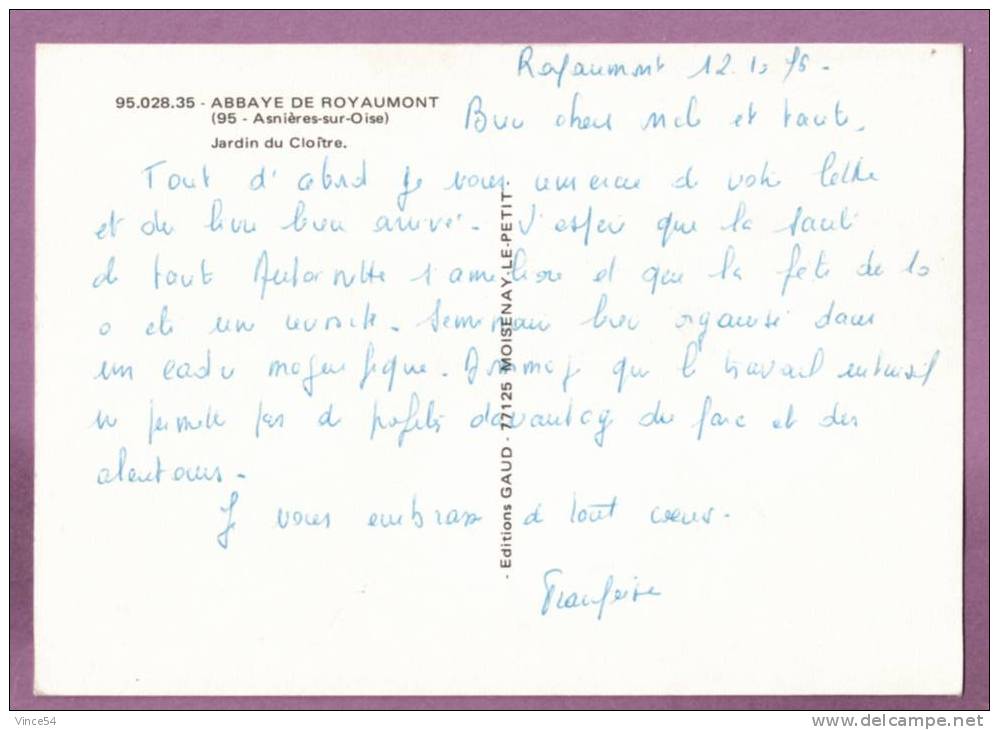 Royaumont 12.10.75-
95.028.35 - ABBAYE DE ROYAUMONT
(95 - Asnières-sur-Oise)
Jardin du Cloître.
Bien chers et tante,
Tout d'abord je vous remercie de votre lettre
et du livre bien arrivé. J'espère que la santé
de tante Antoinette s'améliore et que la fête du 10
a été une réussite. Séminaire bien organisé dans
un cadre magnifique. Dommage que le travail intensif
ne permette pas de profiter davantage du parc et des
alentours.
Je vous embrasse de tout cœur.
Françoise
- Editions GAUD - 77125 MOISENAY-LE-PETIT -
Vince54
delcampe.net